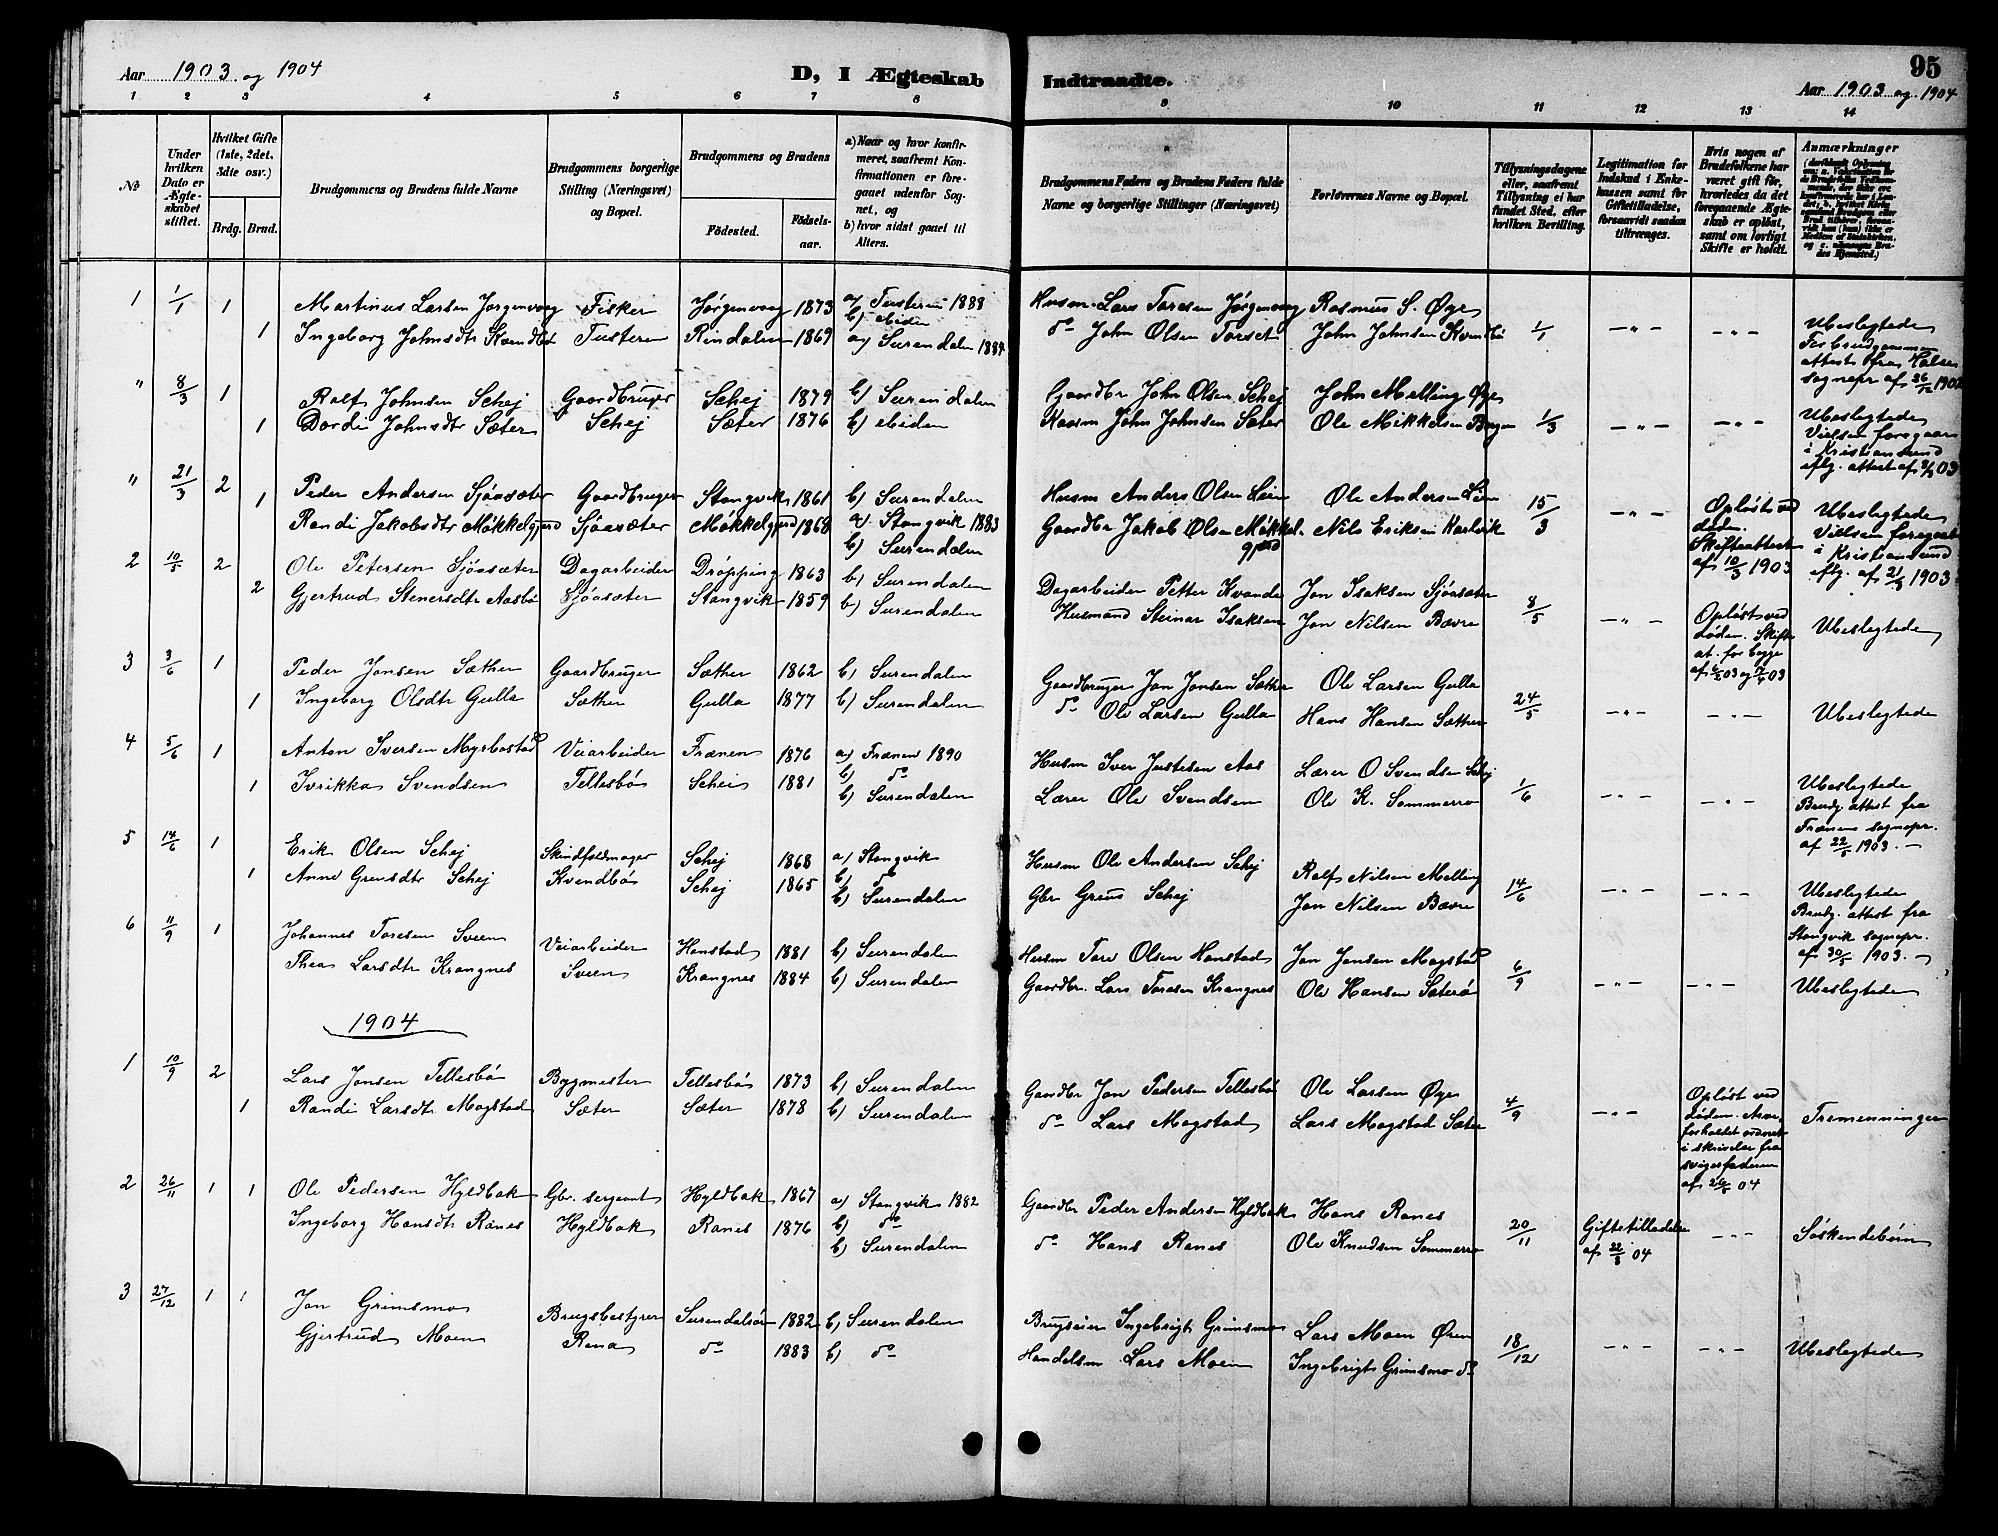 Aar 1903 og 1904
D, I Ægteskab
1 2 3 4 5 6 7 8
No
Under hvilken Dato er Ægteskabet stiftet.
Hvilket Gifte (1ste, 2det, 3die osv.)
Brdg. Brud.
Brudgommens og Brudens fulde Navne
Brudgommens borgerlige Stilling (Næringsvei) og Bopæl.
Brudgommens og Brudens
Fødested.
Fødselsaar.
a) Naar og hvor konfirmeret, saafremt Konfirmationen er foregaaet udenfor Sognet, og
b) hvor sidst gaaet til Alters.
1 1/1 1 Martinus Larsen Jørgenvaag Fisker Jørgenvaag 1873 a) Tusteren 1888
b) ebiden
1 Ingeborg Johnsdtr Kvendbø Tusteren Rindalen 1869 a) Surendalen 1884
" 8/3 1 Ralf Johnsen Schej Gaardbruger Schej 1879 b) Surendalen
1 Dordi Johnsdtr Sæter Schej Sæter 1876 b) ebiden
" 21/3 2 Peder Andersen Sjøasæter Gaardbruger Stangvik 1861 b) Surendalen
1 Randi Jakobsdtr Møkkelgjerd Sjøasæter Møkkelgjerd 1868 a) Stangvik 1883
b) Surendalen
2 10/5 2 Ole Petersen Sjøasæter Dagarbeider Drøpping 1863 b) Surendalen
2 Gjertrud Stenersdtr Aasbø Sjøasæter Stangvik 1859 b) Surendalen
3 3/6 1 Peder Jonsen Sæther Gaardbruger Sæther 1862 b) Surendalen
1 Ingeborg Olsdtr Gulla Sæther Gulla 1877 b) Surendalen
4 5/6 1 Anton Iversen Myrbostad Veiarbeider Frænen 1876 a) Frænen 1890
b) do
1 Ivrikka Svendsen Tellesbø Schei 1881 b) Surendalen
5 14/6 1 Erik Olsen Schej Skindfeldmager Schej 1868 a) Stangvik
b) do
1 Anne Grensdtr Schej Kvendbø Schej 1865 b) Surendalen
6 11/9 1 Johannes Toresen Sveen Veiarbeider Hanstad 1881 b) Surendalen
Thea Larsdtr Krangnes Sveen Krangnes 1884 b) Surendalen
1904
1 10/9 2 Lars Jonsen Tellesbø Bygmester Tellesbø 1873 b) Surendalen
1 Randi Larsdtr Mogstad Sæter Sæter 1878 b) Surendalen
2 26/11 1 1 Ole Pedersen Hyldbak Gbr. sergeant Hyldbak 1867 a) Stangvik 1882
b) do
Ingeborg Hansdtr Ranes Hyldbak Ranes 1876 b) Surendalen
3 27/12 1 1 Jon Grimsmo Brugsbestyrer Surendalsøren 1882 b) Surendalen
Gjertrud Moen Rena do 1883 b) do
Indtraadte.
95
Aar 1903 og 1904
9 10 11 12 13 14
Brudgommens Faders og Brudens Faders fulde Navne og borgerlige Stillinger (Næringsvei)
Forlovernes Navne og Bopæl.
Tillysningsdagene eller, saafremt Tillysning ei har fundet Sted, efter hvilken Bevilling.
Legitimation for Indskud i Enkekassen samt for Giftetilladelse, forsaavidt saadan tiltrænges.
Hvis nogen af Brudefolkene har været gift før, hvorledes da det foregaaende Ægteskab er opløst, samt om lovligt Skifte er holdt.
Anmærkninger
Husm. Lars Toresen Jørgenvaag Rasmus S. Øye
do John Olsen Torset John Johnsen Kvendbø 1/1 — " — — " — Ubeslegtede
For brudgommen
attest fra Halse
sognepr af 26/12 1902
Gaardbr John Olsen Schej John Melling Øye
Kaarm John Johnsen Sæter Ole Mikkelsen Bergen 1/3 — " — — " — Ubeslegtede
Vielsen foregaar
i Kristiansund
iflg. attest af 03
Husm Anders Olsen Leien Ole Andersen Leien
Gaardbr Jakob Olsen Møkkelgjerd Nils Eriksen Karlvik 15/3 — " —
Opløst ved
døden.
Skifteattest
af 10/3 1903
Ubeslegtede
Vielsen foregaat
i Kristiansund
iflg. af 21/3 1903
Dagarbeider Petter Kvande Jon Isaksen Sjøasæter
Husmand Steinar Isaksen Jon Nilsen Bævre 8/5 — " —
Opløst ved
døden. Skifte
at. for begge
Ubeslegtede
Gaardbruger Jon Jonsen Sæther Ole Larsen Gulla
do Ole Larsen Gulla Hans Hansen Sæther 24/5 — " — — " — Ubeslegtede
Husm Iver Justesen Aas Lærer O Svendsen Schej
Lærer Ole Svendsen Ole K. Sommerro 1/6 — " — — " — Ubeslegtede
Brudg. attest fra
Frænens sognepr.
af 22/5 1903. —
Husm Ole Andersen Schej Ralf Nilsen Melling
Gbr Greus Schej Jon Nilsen Bævre 14/6 — " — — " — Ubeslegtede
Brudg. attest fra
Stangvik sognepr.
af 30/5 1903. —
Husm Tore Olsen Hanstad Jon Jonsen Mogstad
Gaardbr. Lars Toresen Krangnes Ole Hansen Sæterø 6/9 — " — — " — Ubeslegtede
Gaardbr Jon Pedersen Tellesbø Ole Larsen Øye
do Lars Mogstad Lars Mogstad Sæter 4/9 — " —
Opløst ved
døden. Arve
forholdet ordnet
i skrivelse fra
svigerfaderen
af 26/5 04
Tremenninger
Gaardbr Peder Andersen Hyldbak Hans Ranes
do Hans Ranes Ole Knudsen Sommerro 20/11 Giftetilladelse
af 22/8 04 — " — Søskendebørn
Brugseier Ingebrigt Grimsmo Lars Moen Øren
Handelsm Lars Moen Ingebrigt Grimsmo do 18/12 — " — — " — Ubeslegtede